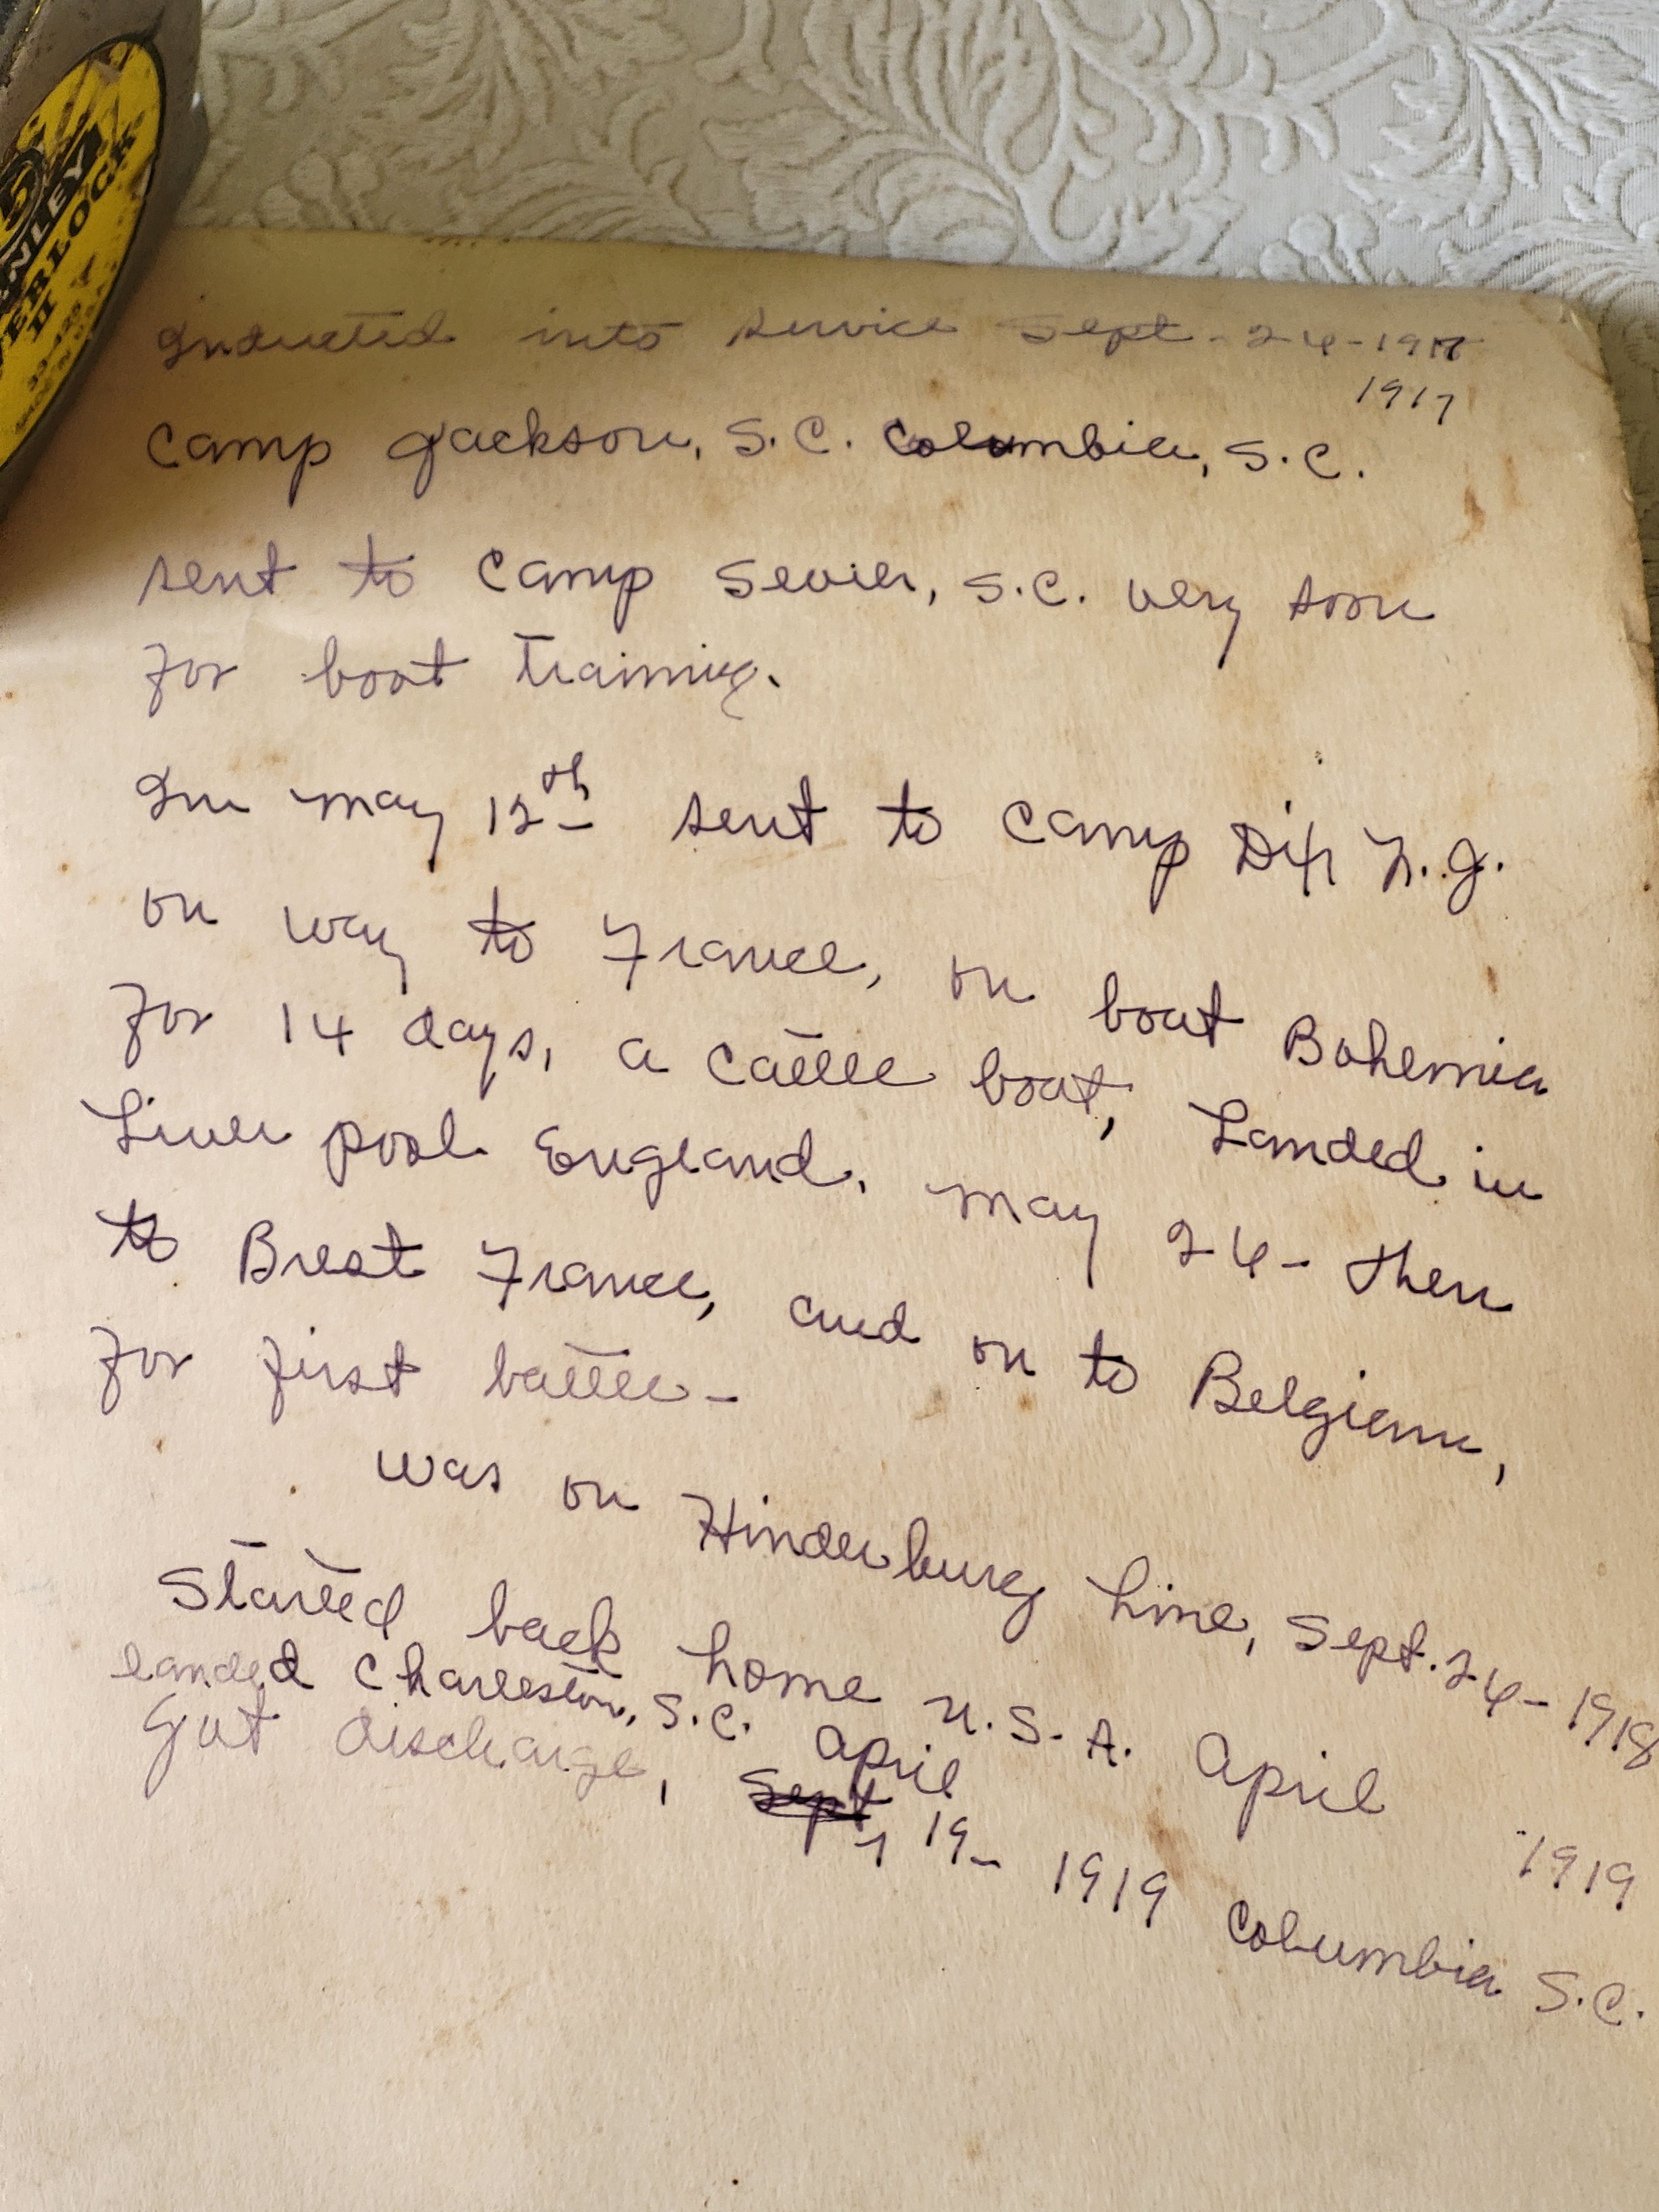 5
NLEY
ERLOCK
II
33-425
Inducted into service Sept - 24 - 1917
1917
Camp Jackson, S.C. Columbia, S.C.
sent to Camp Sevier, S.C. very soon
for boot training.
In May 12th sent to Camp Dix N.J.
on way to France, on boat Bohemia
for 14 days, a cattle boat, Landed in
Liver pool England. May 24 - then
to Brest France, and on to Belgium,
for first battle -
was on Hindenburg Line, Sept. 24 - 1918
Started back home U.S.A. April 1919
landed Charleston, S.C. April
Got discharge, Sept, 19 - 1919 Columbia S.C.